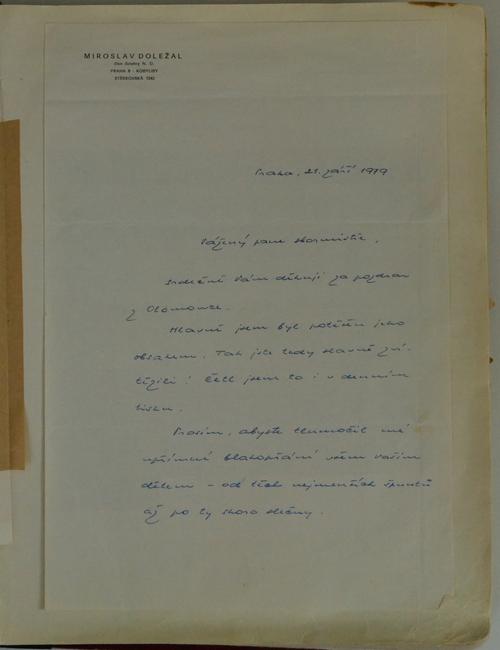 MIROSLAV DOLEŽAL
člen činohry N. D.
PRAHA 8 - KOBYLISY
STŘEKOVSKÁ 1342
Praha, 21. září 1979
Vážený pane sbormistře,
srdečně Vám děkuji za pozdrav
z Olomouce.
Hlavně jsem byl potěšen jeho
obsahem. Tak jste tedy slavně zví-
tězili! Četl jsem to i v denním
tisku.
Prosím, abyste tlumočil mé
upřímné blahopřání všem vašim
dětem – od těch nejmenších špuntů
až po ty skoro slečny.